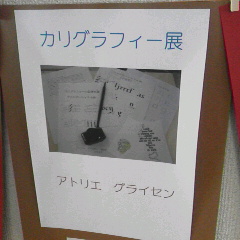 カリグラフィー展
アトリエ グライセン